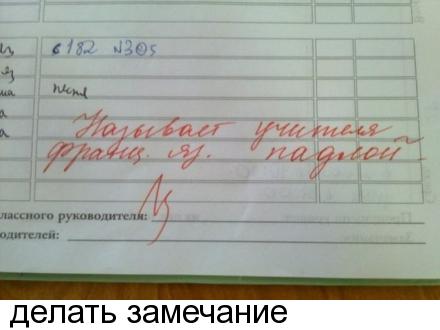 с 182 N305
Называет учителя
франц. яз. падлой
лассного руководителя:
одителей:
делать замечание